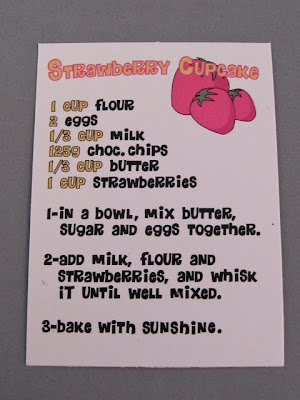 Strawberry Cupcake
1 cup flour
2 eggs
1/3 cup milk
125g choc.chips
1/3 cup butter
1 cup strawberries
1-in a bowl, mix butter,
sugar and eggs together.
2-add milk, flour and
strawberries, and whisk
it until well mixed.
3-bake with sunshine.